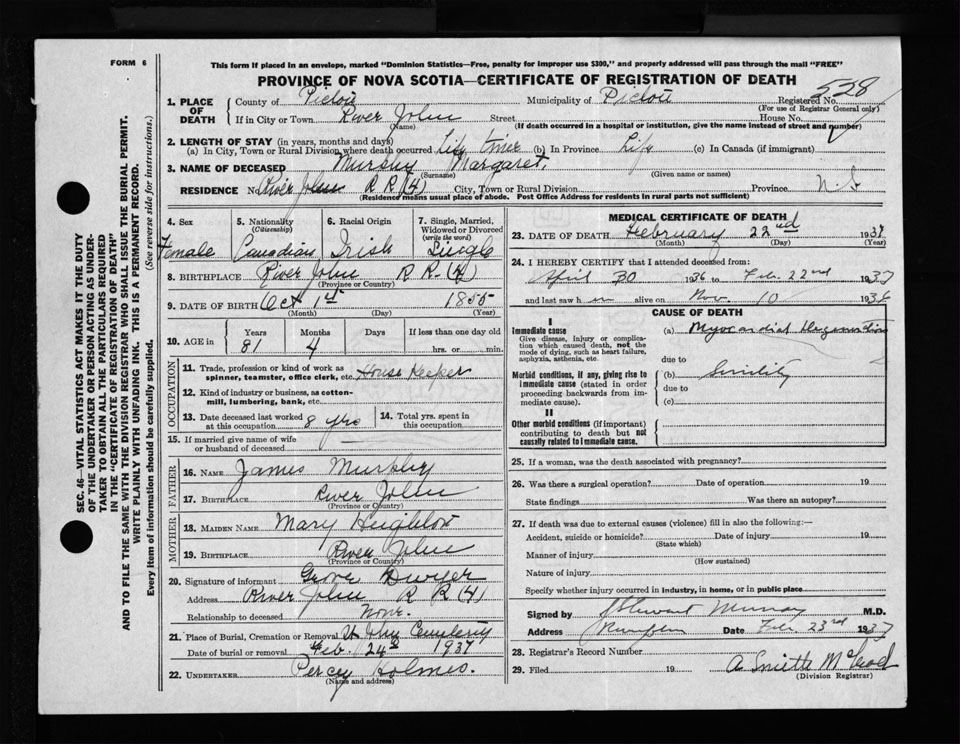 FORM 6
This form if placed in an envelope, marked "Dominion Statistics—Free, penalty for improper use $300," and properly addressed will pass through the mail "FREE"
PROVINCE OF NOVA SCOTIA—CERTIFICATE OF REGISTRATION OF DEATH
528
1. PLACE OF DEATH
County of Pictou Municipality of Pictou Registered No.
(For use of Registrar General only)
If in City or Town River John Street House No.
(Name) (If death occurred in a hospital or institution, give the name instead of street and number)
2. LENGTH OF STAY (in years, months and days)
(a) In City, Town or Rural Division where death occurred Life time (b) In Province Life (c) In Canada (if immigrant)
3. NAME OF DECEASED Murphy Margaret,
(Surname) (Given name or names)
RESIDENCE No. River John R R (4) City, Town or Rural Division Province N.S.
(Residence means usual place of abode. Post Office Address for residents in rural parts not sufficient)
4. Sex
Female
5. Nationality
(Citizenship)
Canadian
6. Racial Origin
Irish
7. Single, Married, Widowed or Divorced
(write the word)
Single
8. BIRTHPLACE River John R R. (4)
(Province or Country)
9. DATE OF BIRTH Oct 1st 1855
(Month) (Day) (Year)
10. AGE in
Years Months Days If less than one day old
81 4 hrs. or min.
OCCUPATION
11. Trade, profession or kind of work as spinner, teamster, office clerk, etc. House Keeper
12. Kind of industry or business, as cotton-mill, lumbering, bank, etc.
13. Date deceased last worked at this occupation 8 yrs
14. Total yrs. spent in this occupation
15. If married give name of wife or husband of deceased
FATHER
16. NAME James Murphy
17. BIRTHPLACE River John
(Province or Country)
MOTHER
18. MAIDEN NAME Mary
19. BIRTHPLACE River John
(Province or Country)
20. Signature of informant Dwyer
Address River John R R (4)
Relationship to deceased None.
21. Place of Burial, Cremation or Removal Cemetery
Date of burial or removal Feb. 24th 1937
22. UNDERTAKER Percy Holmes.
(Name and address)
MEDICAL CERTIFICATE OF DEATH
23. DATE OF DEATH February 22nd 1937
(Month) (Day)
24. I HEREBY CERTIFY that I attended deceased from:
April 30 1936 to Feb. 22nd 1937
and last saw h er alive on Nov. 10 1936
CAUSE OF DEATH
I
Immediate cause
Give disease, injury or complication which caused death, not the mode of dying, such as heart failure, asphyxia, asthenia, etc.
(a) Myocardial Degeneration
due to
Morbid conditions, if any, giving rise to immediate cause (stated in order proceeding backwards from immediate cause).
(b) Senility
due to
(c)
II
Other morbid conditions (if important) contributing to death but not causally related to immediate cause.
25. If a woman, was the death associated with pregnancy?
26. Was there a surgical operation? Date of operation 19
State findings Was there an autopsy?
27. If death was due to external causes (violence) fill in also the following:—
Accident, suicide or homicide? Date of injury 19
(State which)
Manner of injury
(How sustained)
Nature of injury
Specify whether injury occurred in industry, in home, or in public place
Signed by Murray M.D.
Address Date Feb. 23rd 1937
28. Registrar's Record Number
29. Filed 19
(Division Registrar)
SEC. 46—VITAL STATISTICS ACT MAKES IT THE DUTY
OF THE UNDERTAKER OR PERSON ACTING AS UNDER-
TAKER TO OBTAIN ALL THE PARTICULARS REQUIRED
IN THE "CERTIFICATE OF REGISTRATION OF DEATH"
AND TO FILE THE SAME WITH THE DIVISION REGISTRAR WHO SHALL ISSUE THE BURIAL PERMIT.
WRITE PLAINLY WITH UNFADING INK. THIS IS A PERMANENT RECORD.
Every item of information should be carefully supplied. (See reverse side for instructions.)